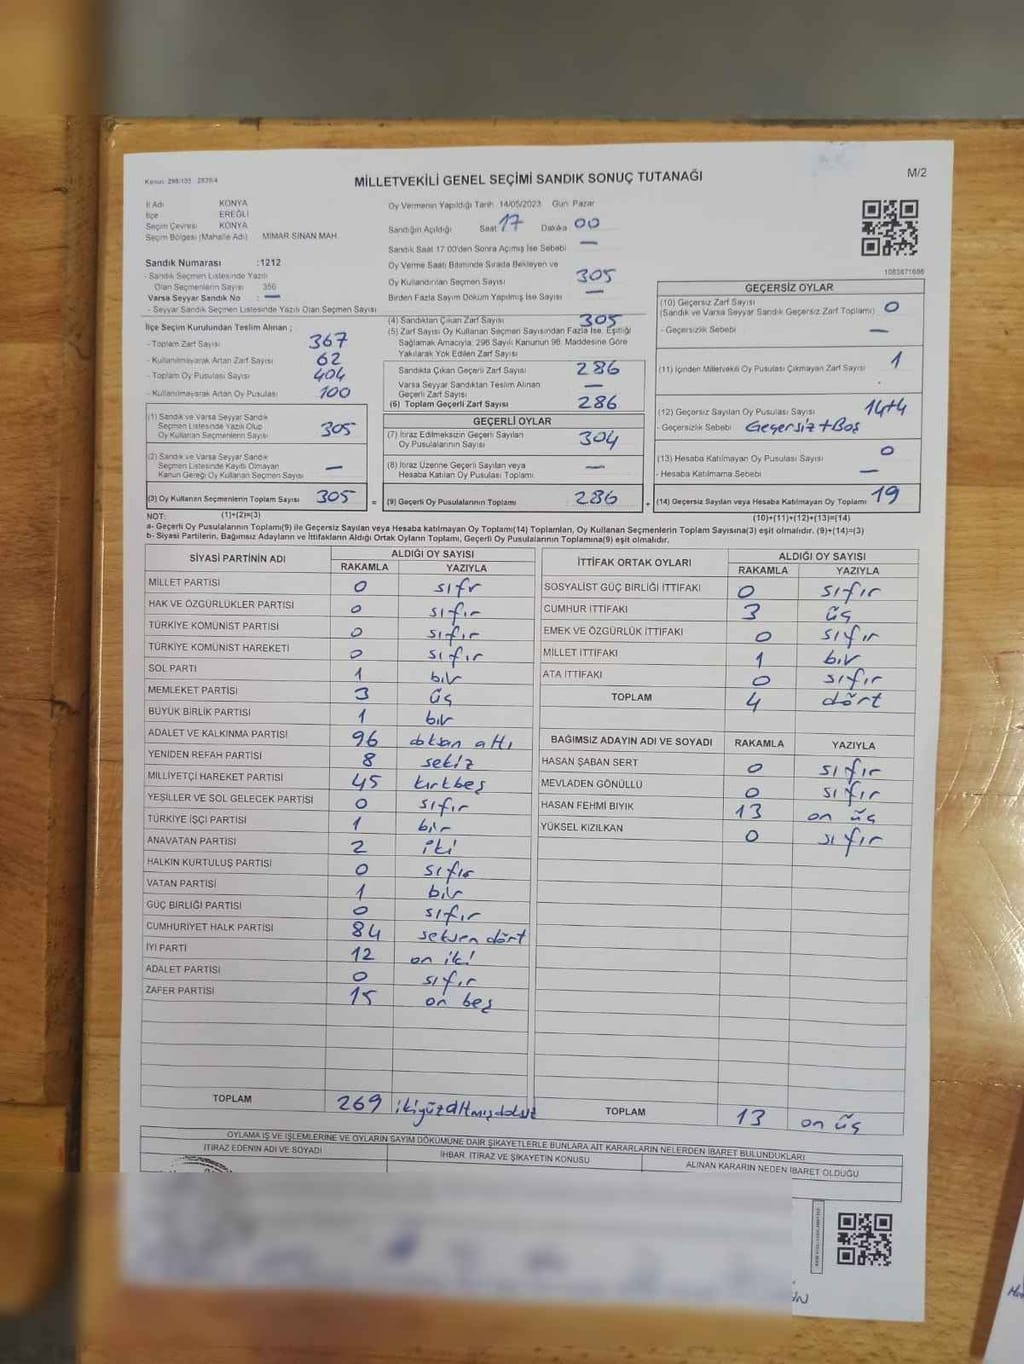 Kanun: 298/105 2839/4
MİLLETVEKİLİ GENEL SEÇİMİ SANDIK SONUÇ TUTANAĞI
M/2
İl Adı KONYA
İlçe EREĞLİ
Seçim Çevresi KONYA
Seçim Bölgesi (Mahalle Adı) MİMAR SİNAN MAH.
Sandık Numarası :1212
- Sandık Seçmen Listesinde Yazılı
Olan Seçmenlerin Sayısı 356
Varsa Seyyar Sandık No : —
- Seyyar Sandık Seçmen Listesinde Yazılı Olan Seçmen Sayısı
Oy Vermenin Yapıldığı Tarih 14/05/2023 Gün: Pazar
Sandığın Açıldığı Saat 17 Dakika 00
Sandık Saat 17:00'den Sonra Açılmış İse Sebebi —
Oy Verme Saati Bitiminde Sırada Bekleyen ve
Oy Kullandırılan Seçmen Sayısı 305
Birden Fazla Sayım Döküm Yapılmış İse Sayısı —
İlçe Seçim Kurulundan Teslim Alınan ;
- Toplam Zarf Sayısı 367
- Kullanılmayarak Artan Zarf Sayısı 62
- Toplam Oy Pusulası Sayısı 404
- Kullanılmayarak Artan Oy Pusulası 100
(1) Sandık ve Varsa Seyyar Sandık
Seçmen Listesinde Yazılı Olup
Oy Kullanan Seçmenlerin Sayısı 305
(2) Sandık ve Varsa Seyyar Sandık
Seçmen Listesinde Kayıtlı Olmayan
Kanun Gereği Oy Kullanan Seçmen Sayısı —
(3) Oy Kullanan Seçmenlerin Toplam Sayısı 305
(4) Sandıktan Çıkan Zarf Sayısı 305
(5) Zarf Sayısı Oy Kullanan Seçmen Sayısından Fazla İse, Eşitliği
Sağlamak Amacıyla, 298 Sayılı Kanunun 98. Maddesine Göre
Yakılarak Yok Edilen Zarf Sayısı
Sandıkta Çıkan Geçerli Zarf Sayısı 286
Varsa Seyyar Sandıktan Teslim Alınan
Geçerli Zarf Sayısı —
(6) Toplam Geçerli Zarf Sayısı 286
GEÇERLİ OYLAR
(7) İtiraz Edilmeksizin Geçerli Sayılan
Oy Pusulalarının Sayısı 304
(8) İtiraz Üzerine Geçerli Sayılan veya
Hesaba Katılan Oy Pusulası Toplamı —
= (9) Geçerli Oy Pusulalarının Toplamı 286
1083671686
GEÇERSİZ OYLAR
(10) Geçersiz Zarf Sayısı
(Sandık ve Varsa Seyyar Sandık Geçersiz Zarf Toplamı) 0
- Geçersizlik Sebebi —
(11) İçinden Milletvekili Oy Pusulası Çıkmayan Zarf Sayısı 1
(12) Geçersiz Sayılan Oy Pusulası Sayısı 14+4
- Geçersizlik Sebebi Geçersiz+Boş
(13) Hesaba Katılmayan Oy Pusulası Sayısı 0
- Hesaba Katılmama Sebebi —
+ (14) Geçersiz Sayılan veya Hesaba Katılmayan Oy Toplamı 19
NOT: (1)+(2)=(3) (10)+(11)+(12)+(13)=(14)
a- Geçerli Oy Pusulalarının Toplamı(9) ile Geçersiz Sayılan veya Hesaba katılmayan Oy Toplamı(14) Toplamları, Oy Kullanan Seçmenlerin Toplam Sayısına(3) eşit olmalıdır. (9)+(14)=(3)
b- Siyasi Partilerin, Bağımsız Adayların ve İttifakların Aldığı Ortak Oyların Toplamı, Geçerli Oy Pusulalarının Toplamına(9) eşit olmalıdır.
SİYASİ PARTİNİN ADI ALDIĞI OY SAYISI
RAKAMLA YAZIYLA
MİLLET PARTİSİ 0 sıfır
HAK VE ÖZGÜRLÜKLER PARTİSİ 0 sıfır
TÜRKİYE KOMÜNİST PARTİSİ 0 sıfır
TÜRKİYE KOMÜNİST HAREKETİ 0 sıfır
SOL PARTİ 1 bir
MEMLEKET PARTİSİ 3 üç
BÜYÜK BİRLİK PARTİSİ 1 bir
ADALET VE KALKINMA PARTİSİ 96 doksan altı
YENİDEN REFAH PARTİSİ 8 sekiz
MİLLİYETÇİ HAREKET PARTİSİ 45 kırkbeş
YEŞİLLER VE SOL GELECEK PARTİSİ 0 sıfır
TÜRKİYE İŞÇİ PARTİSİ 1 bir
ANAVATAN PARTİSİ 2 iki
HALKIN KURTULUŞ PARTİSİ 0 sıfır
VATAN PARTİSİ 1 bir
GÜÇ BİRLİĞİ PARTİSİ 0 sıfır
CUMHURİYET HALK PARTİSİ 84 seksen dört
İYİ PARTİ 12 on iki
ADALET PARTİSİ 0 sıfır
ZAFER PARTİSİ 15 on beş
TOPLAM 269 ikiyüzaltmışdokuz
İTTİFAK ORTAK OYLARI ALDIĞI OY SAYISI
RAKAMLA YAZIYLA
SOSYALİST GÜÇ BİRLİĞİ İTTİFAKI 0 sıfır
CUMHUR İTTİFAKI 3 üç
EMEK VE ÖZGÜRLÜK İTTİFAKI 0 sıfır
MİLLET İTTİFAKI 1 bir
ATA İTTİFAKI 0 sıfır
TOPLAM 4 dört
BAĞIMSIZ ADAYIN ADI VE SOYADI RAKAMLA YAZIYLA
HASAN ŞABAN SERT 0 sıfır
MEVLADEN GÖNÜLLÜ 0 sıfır
HASAN FEHMİ BIYIK 13 on üç
YÜKSEL KIZILKAN 0 sıfır
TOPLAM 13 on üç
OYLAMA İŞ VE İŞLEMLERİNE VE OYLARIN SAYIM DÖKÜMÜNE DAİR ŞİKAYETLERLE BUNLARA AİT KARARLARIN NELERDEN İBARET BULUNDUKLARI
İTİRAZ EDENİN ADI VE SOYADI İHBAR, İTİRAZ VE ŞİKAYETİN KONUSU ALINAN KARARIN NEDEN İBARET OLDUĞU